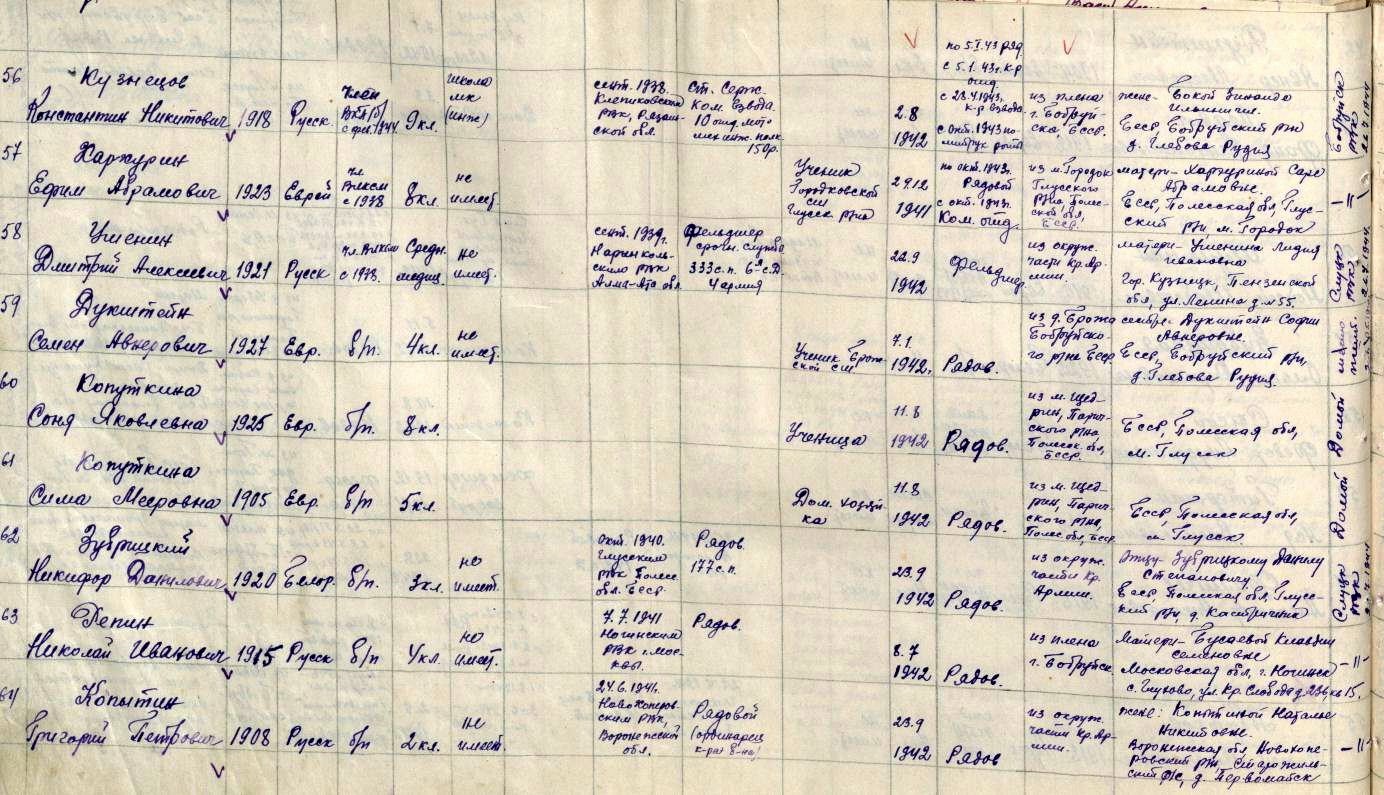 56
Кузнецов
Константин Никитович
1918
Русск
Член
ВКП(б)
с фев. 1944
9 кл.
школа
МК
(инж)
сент. 1938.
Клепиковским
РВК, Рязан-
ской обл.
ст. серж.
ком. взвода.
10 отд. мото
мех инж. полк.
150р.
2.8
1942
по 5.I.43 ряд
с 5.1.43г. к-р
отд
с 23.4.1943,
к-р взвода
с окт. 1943 по-
литрук роты
из плена
г. Бобруй-
ска, Бсср.
жене-
Зинаида
Ильинична.
Бсср, Бобруйский р-н
д. Глебова Рудня
Бобруйск
РВК
57
Харжурин
Ефим Абрамович
1923
Еврей
чл
ВЛКСМ
с 1938
8 кл.
не
имеет
Ученик
Городковской
сш
Глусск р-на
29.12
1941
по окт. 1943г.
Рядовой
с окт. 1943г.
Ком. отд.
из м. Городок
Глусского
р-на, Полес-
ской обл,
Бсср.
матери- Харжуриной Саре
Абрамовне.
Бсср, Полесская обл, Глус-
ский р-н, м. Городок
-"-
58
Уменин
Дмитрий Алексеевич
1921
Русск
чл. ВЛКСМ
с 1938.
Средн.
медиц.
не
имеет.
сент. 1939г.
Нарынколь-
ским РВК
Алма-Ата обл.
Фельдшер
срочн. служба
333 с.п. 6 с.д
4 армия
22.9
1942
Фельдшер.
из окруж.
части Кр. Ар-
мии.
матери- Уменина Лидия
Ивановна
Гор. Кузнецк, Пензенской
обл, ул. Ленина д. № 55.
Слуцк
РВК
59
Дукштейн
Семен Авнерович
1927
Евр.
б/п.
4 кл.
не
имеет.
Ученик Брож-
ской сш
7.1.
1942.
Рядов.
из д. Брожа
Бобруйско-
го р-на Бсср
сестре- Дукштейн Софии
Авнеровне.
Бсср, Бобруйский р-н,
д. Глебова Рудня
60
Копуткина
Соня Яковлевна
1925
Евр.
б/п.
8 кл.
Ученица
11.8
1942
Рядов.
из м. Щед-
рин, Парич-
ского р-на
Полесск. обл,
Бсср.
Бсср, Полесская обл,
м. Глусск
Домой
61
Копуткина
Сима Мееровна
1905
Евр.
б/п
5 кл.
Дом. хозяй
ка
11.8
1942
Рядов.
из м. Щед-
рин, Парич-
ского р-на,
Полес обл, Бсср.
Бсср, Полесская обл,
м. Глусск
Домой
62
Зубрицкий
Никифор Данилович
1920
Белор.
б/п.
3 кл.
не
имеет.
окт. 1940.
Глусским
РВК Полес
обл. Бсср.
Рядов.
177 с.п.
23.9
1942
Рядов.
из окруж.
части Кр.
Армии.
отцу- Зубрицкому Данилу
Степановичу
Бсср, Полесская обл, Глус-
кий р-н, д. Кастричник
Слуцк
РВК
63
Репин
Николай Иванович
1915
Русск
б/п
4 кл.
не
имеет.
7.7.1941
Ногинским
РВК г. Мос-
квы.
Рядов.
8.7
1942
Рядов.
из плена
г. Бобруйск.
Матери- Бусаевой Клавдии
Семеновне
Московская обл, г. Ногинск
с. Глухово, ул. Кр. Слобода д. 23б кв 15.
-"-
64
Копытин
Григорий Петрович
1908
Русск
б/п
2 кл.
не
имеет.
24.6.1941.
Новохоперов-
ским РВК,
Воронежской
обл.
Рядовой
23.9
1942
Рядов
из окруж.
части Кр. Ар-
мии.
жене: Копытиной Наталье
Никитовне.
Воронежская обл Новохопе-
ровский р-н, Старожиль-
ский с/с, д. Первомайск
-"-